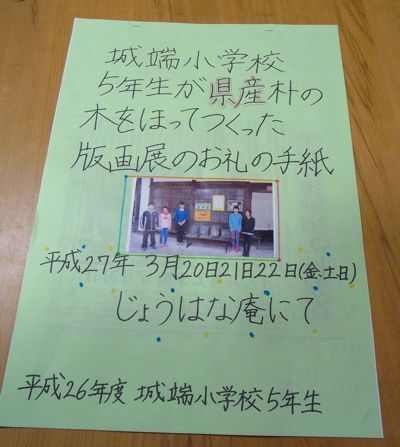 城端小学校
5年生が県産朴の
木をほってつくった
版画展のお礼の手紙
平成27年 3月20日21日22日(金、土日)
じょうはな庵にて
平成26年度 城端小学校5年生